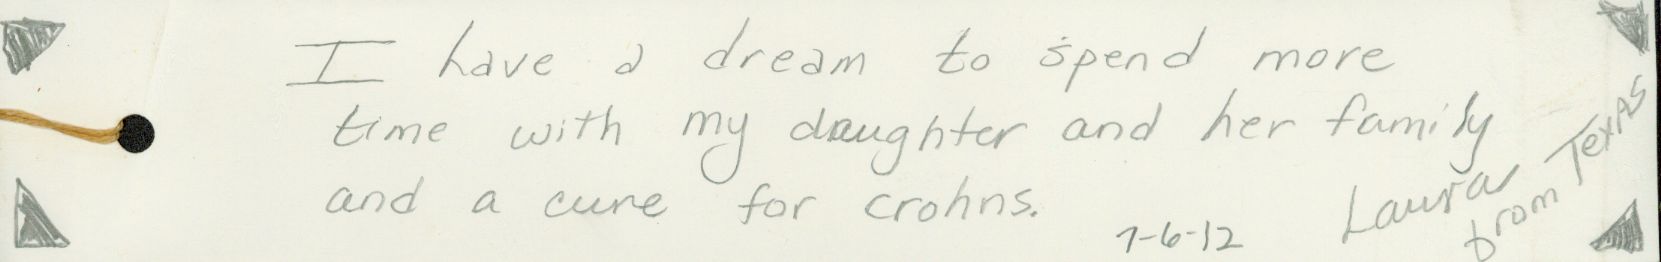 I have a dream to spend more
time with my daughter and her family
and a cure for crohns.
7-6-12
Laura
from Texas